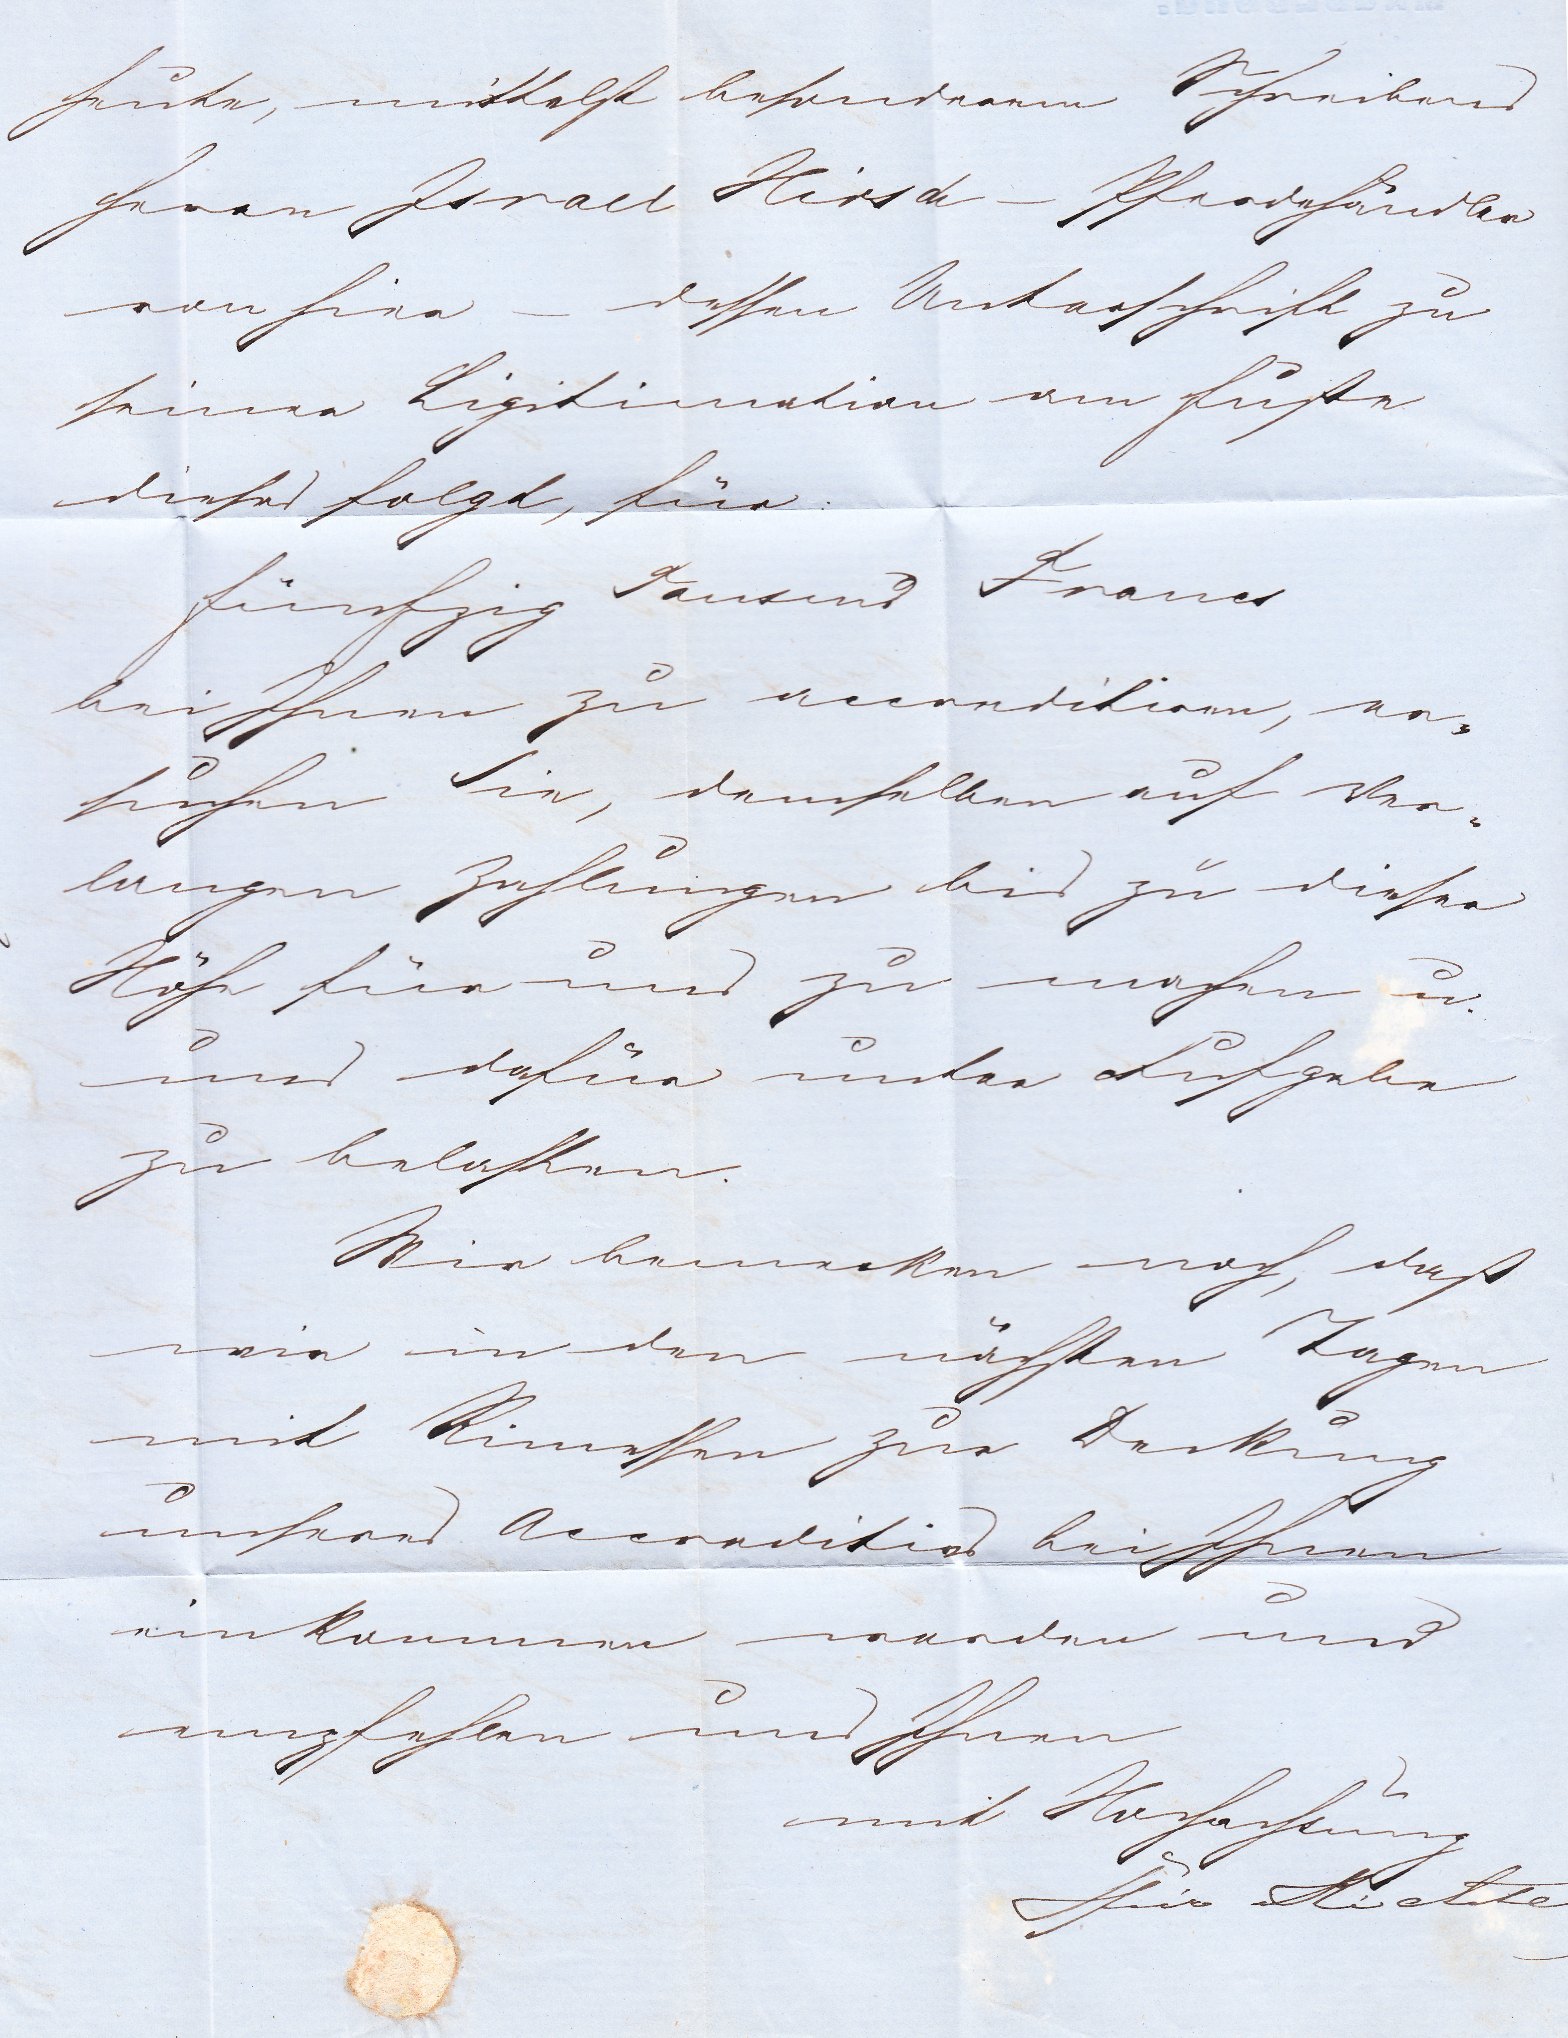 heute, mittelst besonderem Schreibens
Herrn Israel Hirsch – Pferdehändler
von hier – dessen Unterschrift zu
seiner Ligitimation am Fuße
dieses folgt, für
fünfzig Tausend Francs
bei Ihnen zu accreditiren, er„
suchen Sie, demselben auf Ver„
langen Zahlungen bis zu dieser
Höhe für uns zu machen u.
uns dafür unter Aufgabe
zu belasten.
Wir bemerken noch, daß
wir in den nächsten Tagen
mit Rimessen zur Deckung
unseres Accreditivs bei Ihnen
einkommen werden und
empfehlen uns Ihnen
mit Hochachtung